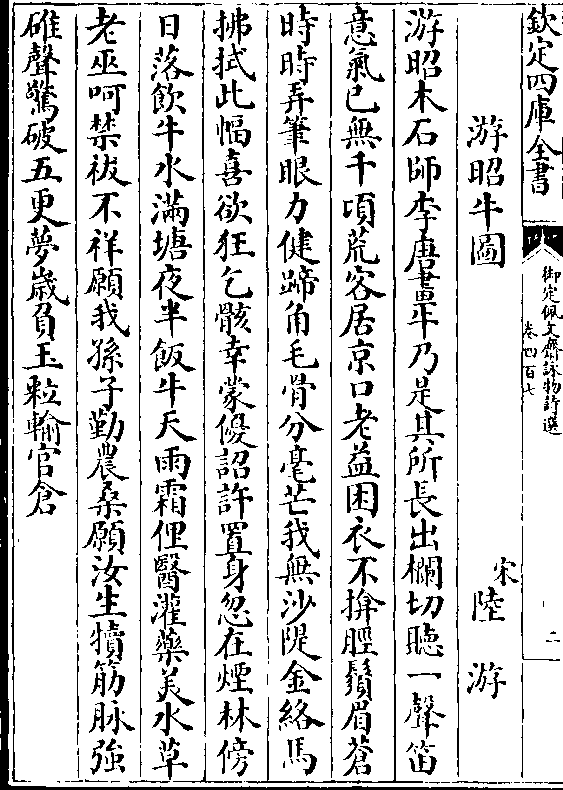 欽定四庫全書
御定佩文齋詠物詩選
卷四百七
二
游昭牛圖
宋陸游
游昭木石師李唐畫牛乃是其所長出欄切聽一聲笛
意氣已無千頃荒客居京口老益困衣不揜脛鬚眉蒼
時時弄筆眼力健蹄角毛骨分毫芒我無沙隄金絡馬
拂拭此幅喜欲狂乞骸幸蒙優詔許置身忽在煙林傍
日落飲牛水滿塘夜半飯牛天雨霜俚醫灌藥美水草
老巫呵禁祓不祥願我孫子勤農桑願汝生犢筋脉強
碓聲驚破五更夢歳負玉粒輸官倉